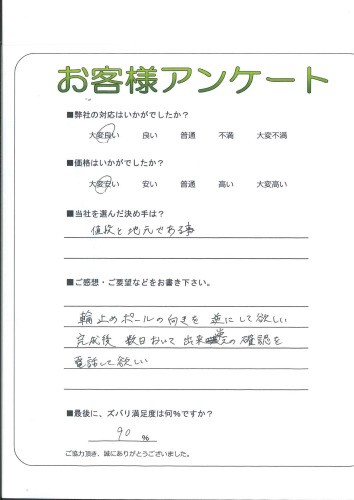 お客様アンケート
■弊社の対応はいかがでしたか？
大変良い 良い 普通 不満 大変不満
■価格はいかがでしたか？
大変安い 安い 普通 高い 大変高い
■当社を選んだ決め手は？
値段と地元である事
■ご感想・ご要望などをお書き下さい。
輪止めポールの向きを逆にして欲しい
完成後 数日おいて 出来の確認を
電話して欲しい
■最後に、ズバリ満足度は何%ですか？
90 %
ご協力頂き、誠にありがとうございました。